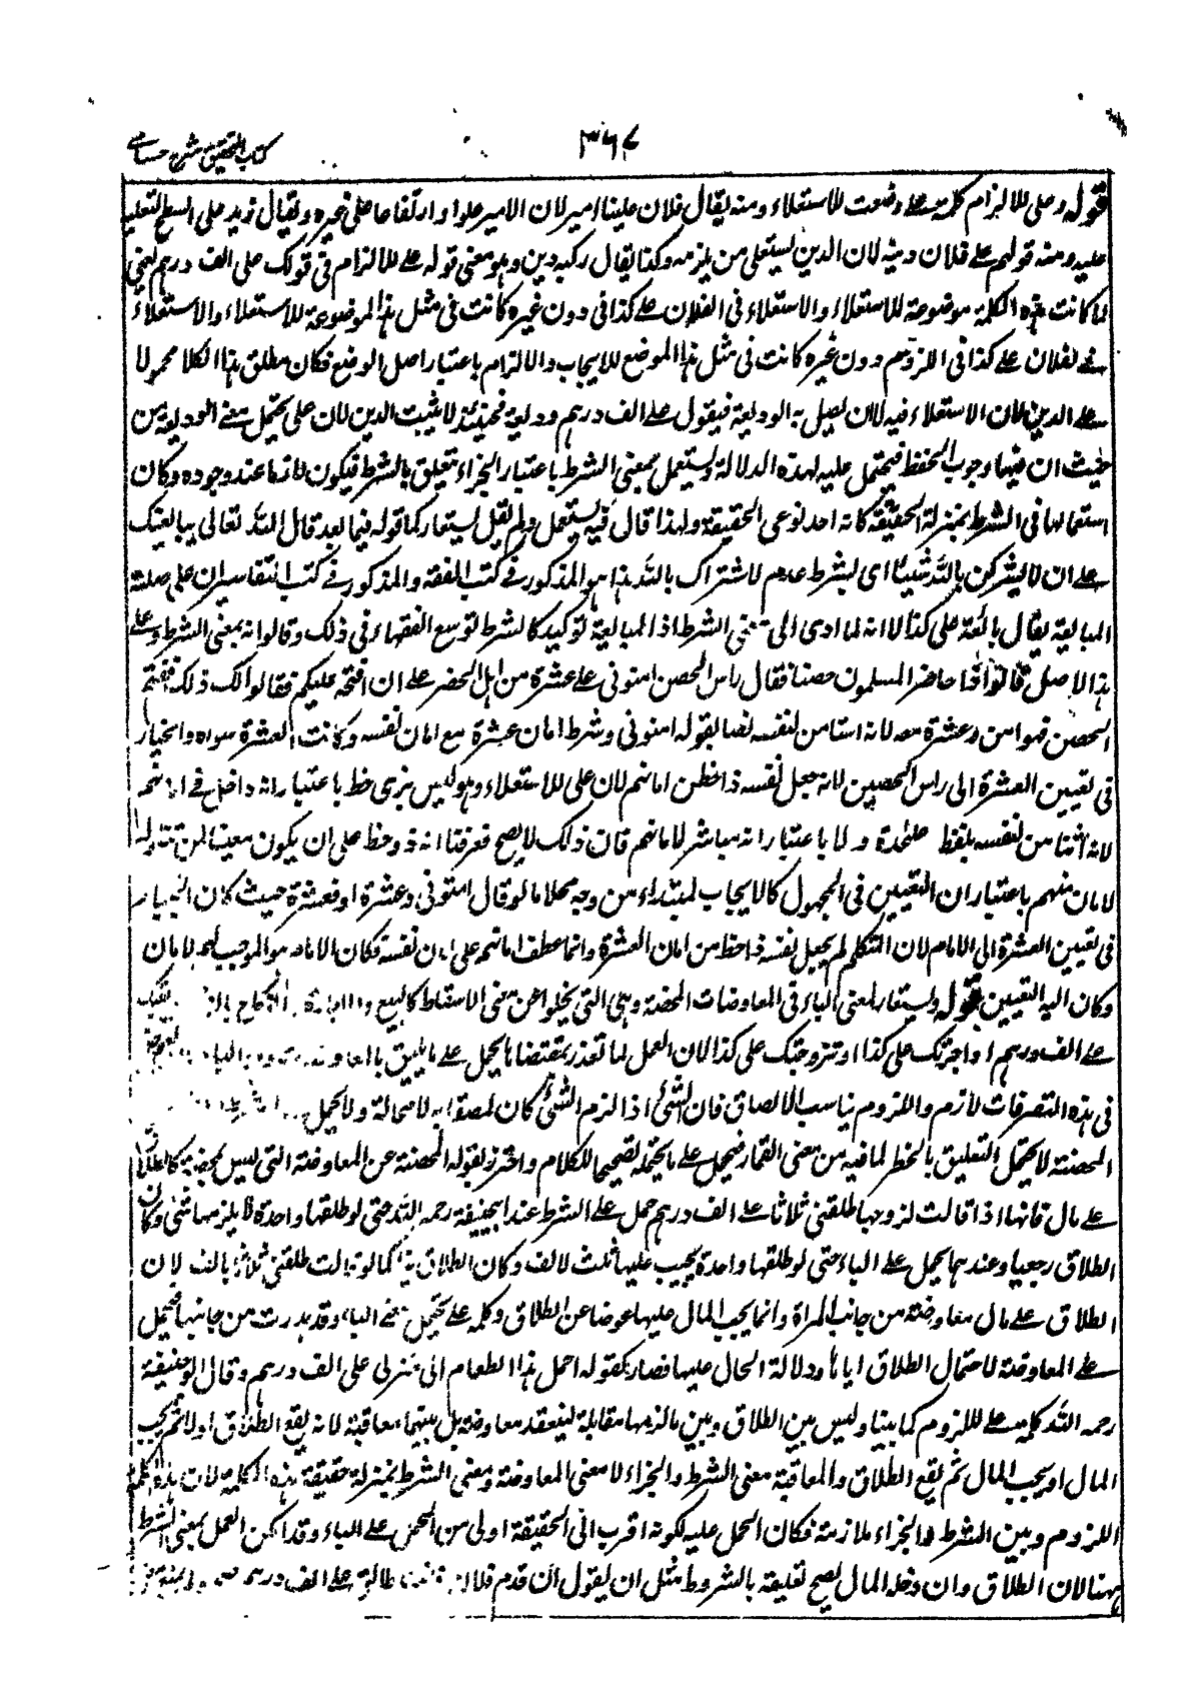 كتاب التحقيق شرح حسامي
٣٦٤
قوله وعلى للالزام كلمة على وضعت للاستعلاء ومنه يقال فلان علينا امير لان الامير علوا وارتفاعا على غيره ويقال زيد على السطح لتعليه
عليه ومنه قولهم على فلان دين لان الدين يستعلى من يلزمه وكذا يقال ركبه دين وهو معنى قوله على للالزام فى قولك على الف درهم يعنى
لما كانت هذه الكلمة موضوعة للاستعلاء والاستعلاء فى الفلان على كذا فى دون غيره كانت فى مثل هذا الموضوعة للاستعلاء والاستعلاء
فى لفلان على كذا فى اللزوم دون غيره كانت فى مثل هذا الموضع للايجاب والالزام باعتبار اصل الوضع فكان مطلق هذا الكلام محمولا
على الدين لان الاستعلاء فيه الا ان يصل به الوديعة فيقول على الف درهم وديعة فحينئذ لا يثبت الدين لان على يحتمل معنى الوديعة من
حيث ان فيها وجوب الحفظ فيحمل عليه لهذه الدلالة ويستعمل بمعنى الشرط باعتبار الجزاء يتعلق بالشرط فيكون لازما عند وجوده وكان
استعمالها فى الشرط بمنزلة الحقيقة كانه احد نوعى الحقيقة ولهذا قال فيه يستعمل ولم يقل يستعار كما قوله فيما بعد قال الله تعالى يبايعنك
على ان لا يشركن بالله شيئا اى بشرط عدم الاشتراك بالله هذا هو المذكور فى كتب الفقه والمذكور فى كتب التفاسير ان على صلة
المبايعة يقال بايعته على كذا الا انه لما ادى الى معنى الشرط اذ المبايعة توكيد كالشرط توسع الفقهاء فى ذلك وقالوا انه بمعنى الشرط وعلى
هذا الاصل قالوا اذا حاضر المسلمون حصنا فقال راس الحصن امنونى على عشرة من اهل الحضر على ان افتحه عليكم فقالوا لك ذلك ففتح
الحصن فهو امن وعشرة معه لانه استامن لنفسه نصا بقوله امنونى وشرط امان عشرة مع امان نفسه وكانت العشرة سواه والخيار
فى تعيين العشرة الى راس الحصين لانه جعل نفسه ذا حظ من امانهم لان على للاستعلاء وهو ليس بذى حظ باعتبار انه داخل فى امانهم
لانه استامن لنفسه بلفظ علحدة ولا باعتبار انه مباشر لامانهم فان ذلك لا يصح فعرفنا انه ذو حظ على ان يكون معينا لمن تناوله
لامان منهم باعتبار ان التعيين فى المجهول كالايجاب لمبتداء من وجه محلا ما لو قال امنونى وعشرة او فعشرة حيث كان الخيار
فى تعيين العشرة الى الامام لان المتكلم لم يجعل نفسه ذا حظ من امان العشرة وانما عطف امانهم على امان نفسه فكان الامام هو الموجب لهم لامان
وكان اليه التعيين قوله ويستعار لمعنى الباء فى المعاوضات المحضة وهى التى تخلوا عن معنى الاسقاط كالبيع والاجارة والنكاح
على الف درهم او اجرتك على كذا او تزوجتك على كذا لان العمل لما تعذر بمقتضاها يحمل على ما يليق
فى هذه التصرفات لازم واللزوم يناسب الالصاق فان الشئ اذا لزم الشئ كان ملصقا به لا محالة ولا يحمل
المحضة لا يحتمل التعليق بالخطر لما فيه من معنى القمار فيحمل على ما يحتمله تصحيحا للكلام واحترز بقوله المحضة عن المعاوضة التى ليس بمحضة كالطلاق
على مال فانها اذا قالت لزوجها طلقنى ثلاثا على الف درهم حمل على الشرط عند ابى حنيفة رحمه الله حتى لو طلقها واحدة لا يلزمها شئ وكان
الطلاق رجعيا وعندهما يحمل على الباء حتى لو طلقها واحدة يجب عليها ثلث لالف وكان الطلاق كما لو قالت طلقنى ثلاثا بالف لان
الطلاق على مال معاوضة من جانب المراة وانما يجب المال عليها عوضا عن الطلاق وكلمة على تحتمل معنى الباء وقد صدرت من جانبها فيحمل
على المعاوضة لاحتمال الطلاق اياها ودلالة الحال عليها فصار كقوله احمل هذا الطعام الى منزلى على الف درهم وقال ابو حنيفة
رحمه الله كلمة على للزوم كما بينا وليس بين الطلاق وبين ما لزمها مقابلة لينعقد معاوضة بل بينهما معاقبة لانه يقع الطلاق اولا ثم يجب
المال او يجب المال ثم يقع الطلاق والمعاقبة معنى الشرط والجزاء لا معنى المعاوضة ومعنى الشرط بمنزلة حقيقة هذه الكلمة لان هذه الكلمة
اللزوم وبين الشرط والجزاء ملازمة فكان الحمل عليه لكونه اقرب الى الحقيقة اولى من الحمل على الباء وقد امكن العمل بمعنى الشرط
ههنا لان الطلاق وان دخله المال يصح تعليقه بالشروط مثل ان يقول ان قدم فلان فانت طالق على الف درهم